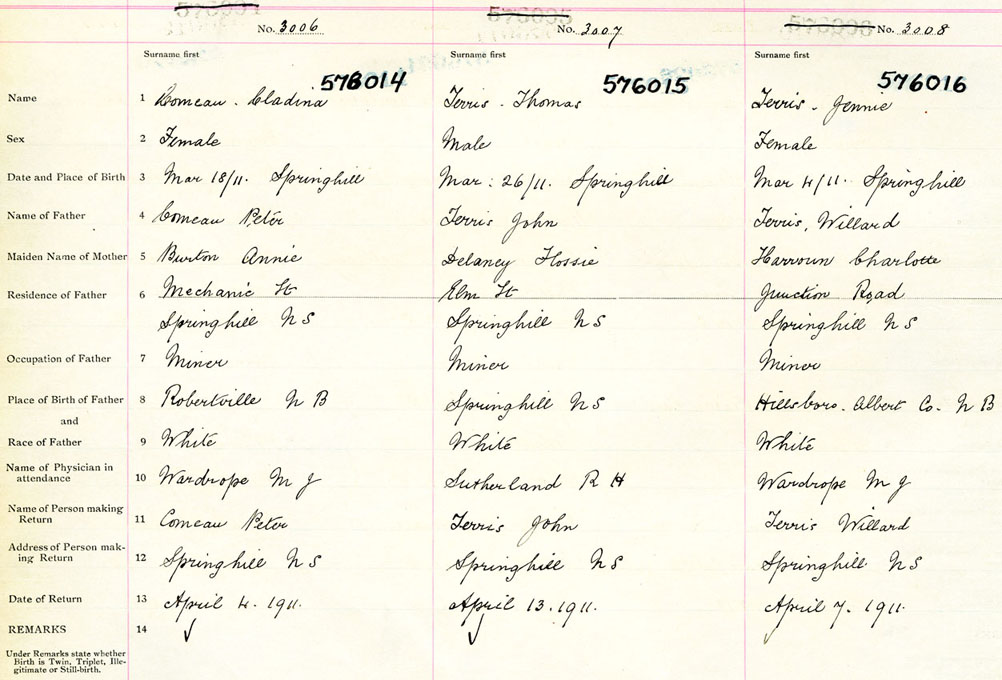 No. 3006 No. 3007 No. 3008
Surname first Surname first Surname first
576014 576015 576016
Name 1 Comeau - Cladina Terris - Thomas Terris - Jennie
Sex 2 Female Male Female
Date and Place of Birth 3 Mar 18/11. Springhill Mar: 26/11. Springhill Mar 4/11. Springhill
Name of Father 4 Comeau Peter Terris John Terris, Willard
Maiden Name of Mother 5 Burton Annie Delaney Flossie Harroun Charlotte
Residence of Father 6 Mechanic St Elm St Junction Road
Springhill N S Springhill N S Springhill N S
Occupation of Father 7 Miner Miner Miner
Place of Birth of Father 8 Robertville N B Springhill N S Hillsboro. Albert Co. N B
and
Race of Father 9 White White White
Name of Physician in
attendance 10 Wardrope M J Sutherland R H Wardrope M J
Name of Person making
Return 11 Comeau Peter Terris John Terris Willard
Address of Person mak-
ing Return 12 Springhill N S Springhill N S Springhill N S
Date of Return 13 April 4. 1911. April 13. 1911. April 7. 1911.
REMARKS 14 ✓ ✓
Under Remarks state whether
Birth is Twin, Triplet, Ille-
gitimate or Still-birth.